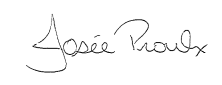 Josée Proulx